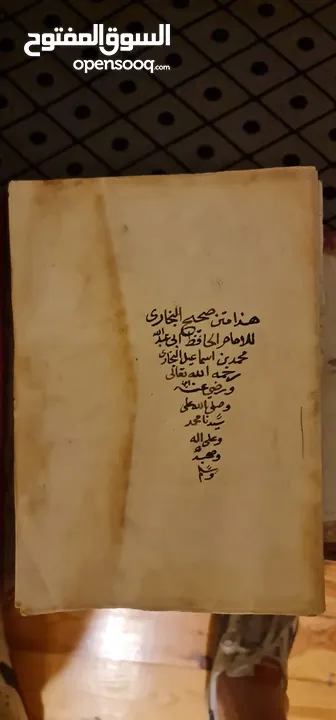 السوق المفتوح
opensooq.com
هذا متن صحيح البخارى
للامام الحافظ ابى عبد الله
محمد بن اسماعيل البخارى
رحمه الله تعالى
ورضى عنه
وصلى الله على
سيدنا محمد
وعلى اله
وصحبه
وسلم